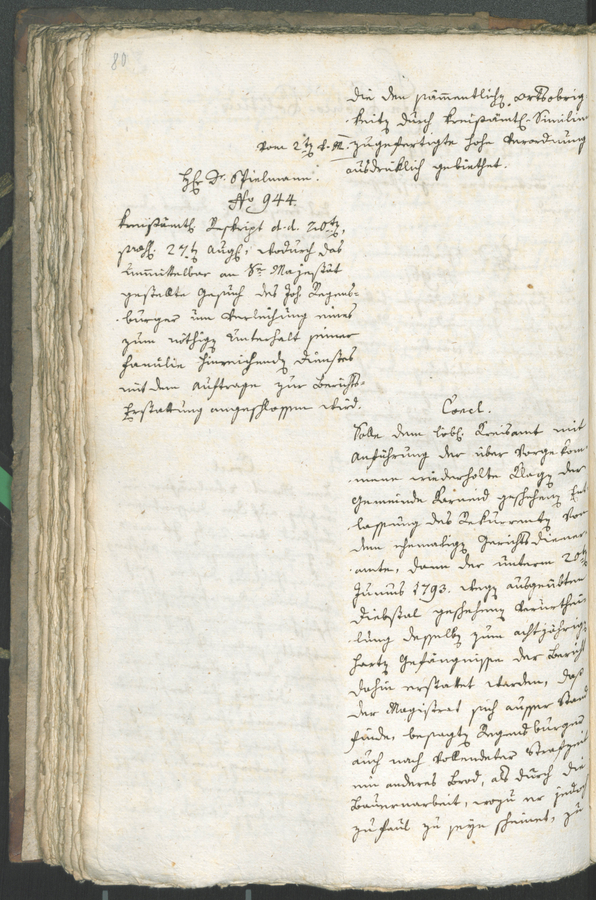 80
die den sämmentlichen Ortsobrig
keiten durch kreisämtl. Similia
zugefertigte hohe Verordnung
ausdrücklich gebiethet.
vom 2ten
Hr. Dr. Spielmann.
No. 944.
Kreisämtl. Reskript d. d. 20ten,
praes. 27ten Aug., wodurch das
unmittelbar an Se. Majestät
gestellte Gesuch des Joh. Regens-
burger um Verleihung eines
zum nöthigen Unterhalt seiner
Familie hinreichenden Dienstes
mit dem Auftrage zur Berichts-
Erstattung angeschlossen wird.
Concl.
Solle dem löbl. Kreisamt mit
Anführung der über vorgekom-
mene wiederholte Klagen der
Gemeinde Karneid geschehenen Ent-
lassung des Rekurrenten von
dem ehemaligen Gerichtsdiener-
amte, dann der unterm 20ten
Junius 1793. wegen ausgeübten
Diebstal geschehenen Verurthei-
lung desselben zum achtjährigen
harten Gefängnissen der Bericht
dahin erstattet werden, daß
der Magistrat sich ausser Stand
fände, besagten Regensburger
auch nach vollendeter Strafzeit
ein anderes Brod, als durch die
Bauernarbeit, wozu er jedoch
zu faul zu seyn scheinet, zu